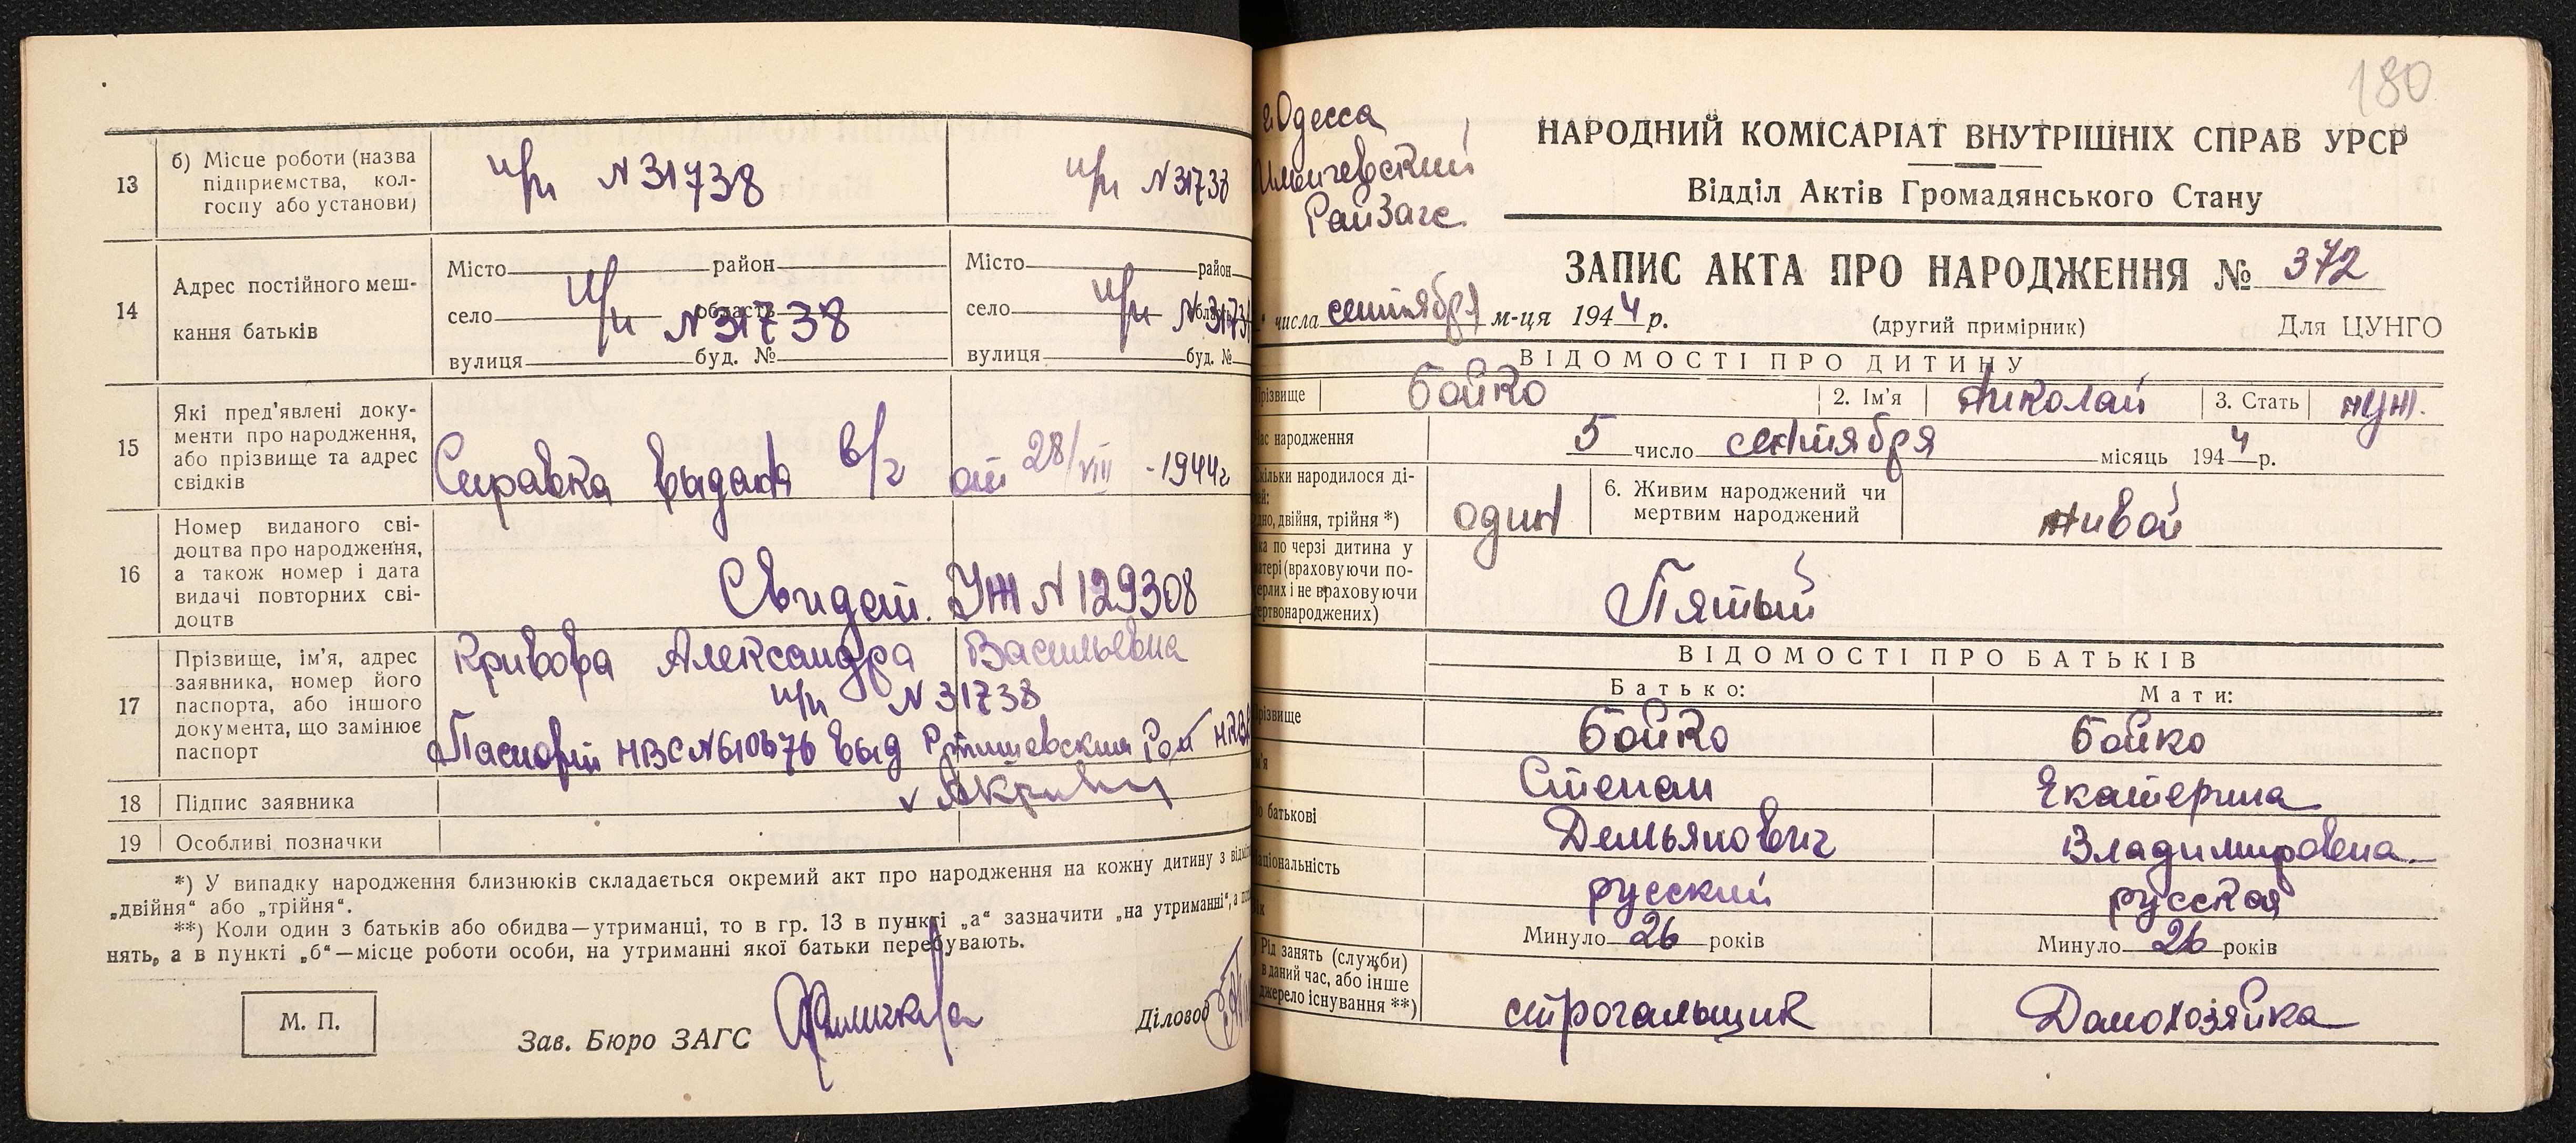 13
б) Місце роботи (назва підприємства, колгоспу або установи)
п/п N 31738
п/п N 31738
14
Адрес постійного мешкання батьків
Місто район
село п/п N 31738 область
вулиця буд. №
Місто район
село п/п
вулиця буд. №
15
Які пред'явлені документи про народження, або прізвище та адрес свідків
Справка выдана в/г от 28/VIII - 1944г
16
Номер виданого свідоцтва про народження, а також номер і дата видачі повторних свідоцтв
Свидет. УЖ N 129308
17
Прізвище, ім'я, адрес заявника, номер його паспорта, або іншого документа, що замінює паспорт
Кривова Александра Васильевна
п/п N 31738
Паспорт выд Ртищевским
18
Підпис заявника
19
Особливі позначки
*) У випадку народження близнюків складається окремий акт про народження на кожну дитину з
„двійня“ або „трійня“.
**) Коли один з батьків або обидва—утриманці, то в гр. 13 в пункті „а“ зазначити „на утриманні“, а
нять, а в пункті „б“—місце роботи особи, на утриманні якої батьки перебувають.
М. П.
Зав. Бюро ЗАГС
Діловод
180
г. Одесса
Ильичевский
РайЗагс
НАРОДНИЙ КОМІСАРІАТ ВНУТРІШНІХ СПРАВ УРСР
Відділ Актів Громадянського Стану
ЗАПИС АКТА ПРО НАРОДЖЕННЯ № 372
числа сентября м-ця 1944 р.
(другий примірник)
Для ЦУНГО
ВІДОМОСТІ ПРО ДИТИНУ
Бойко
2. Ім'я Николай
3. Стать муж.
народження
5 число сентября місяць 1944 р.
народилося
двійня, трійня *)
один
6. Живим народжений чи мертвим народжений
живой
по черзі дитина у
(враховуючи
і не враховуючи
Пятый
ВІДОМОСТІ ПРО БАТЬКІВ
Батько:
Мати:
Бойко
Бойко
Степан
Екатерина
батькові
Демьянович
Владимировна
русский
русская
Минуло 26 років
Минуло 26 років
Рід занять (служби)
в даний час, або інше
джерело існування **)
строгальщик
Домохозяйка